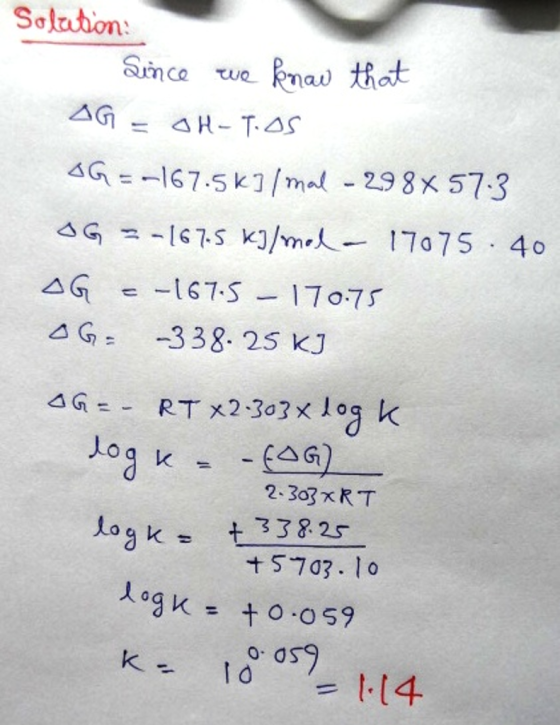 Solution:
Since we know that
ΔG = ΔH - T.ΔS
ΔG = -167.5 KJ/mol - 298 × 57.3
ΔG = -167.5 KJ/mol - 17075.40
ΔG = -167.5 - 170.75
ΔG = -338.25 KJ
ΔG = - RT × 2.303 × log K
log K = -(-ΔG)
2.303 × RT
log K = + 338.25
+5703.10
log K = +0.059
K = 10^0.059 = 1.14